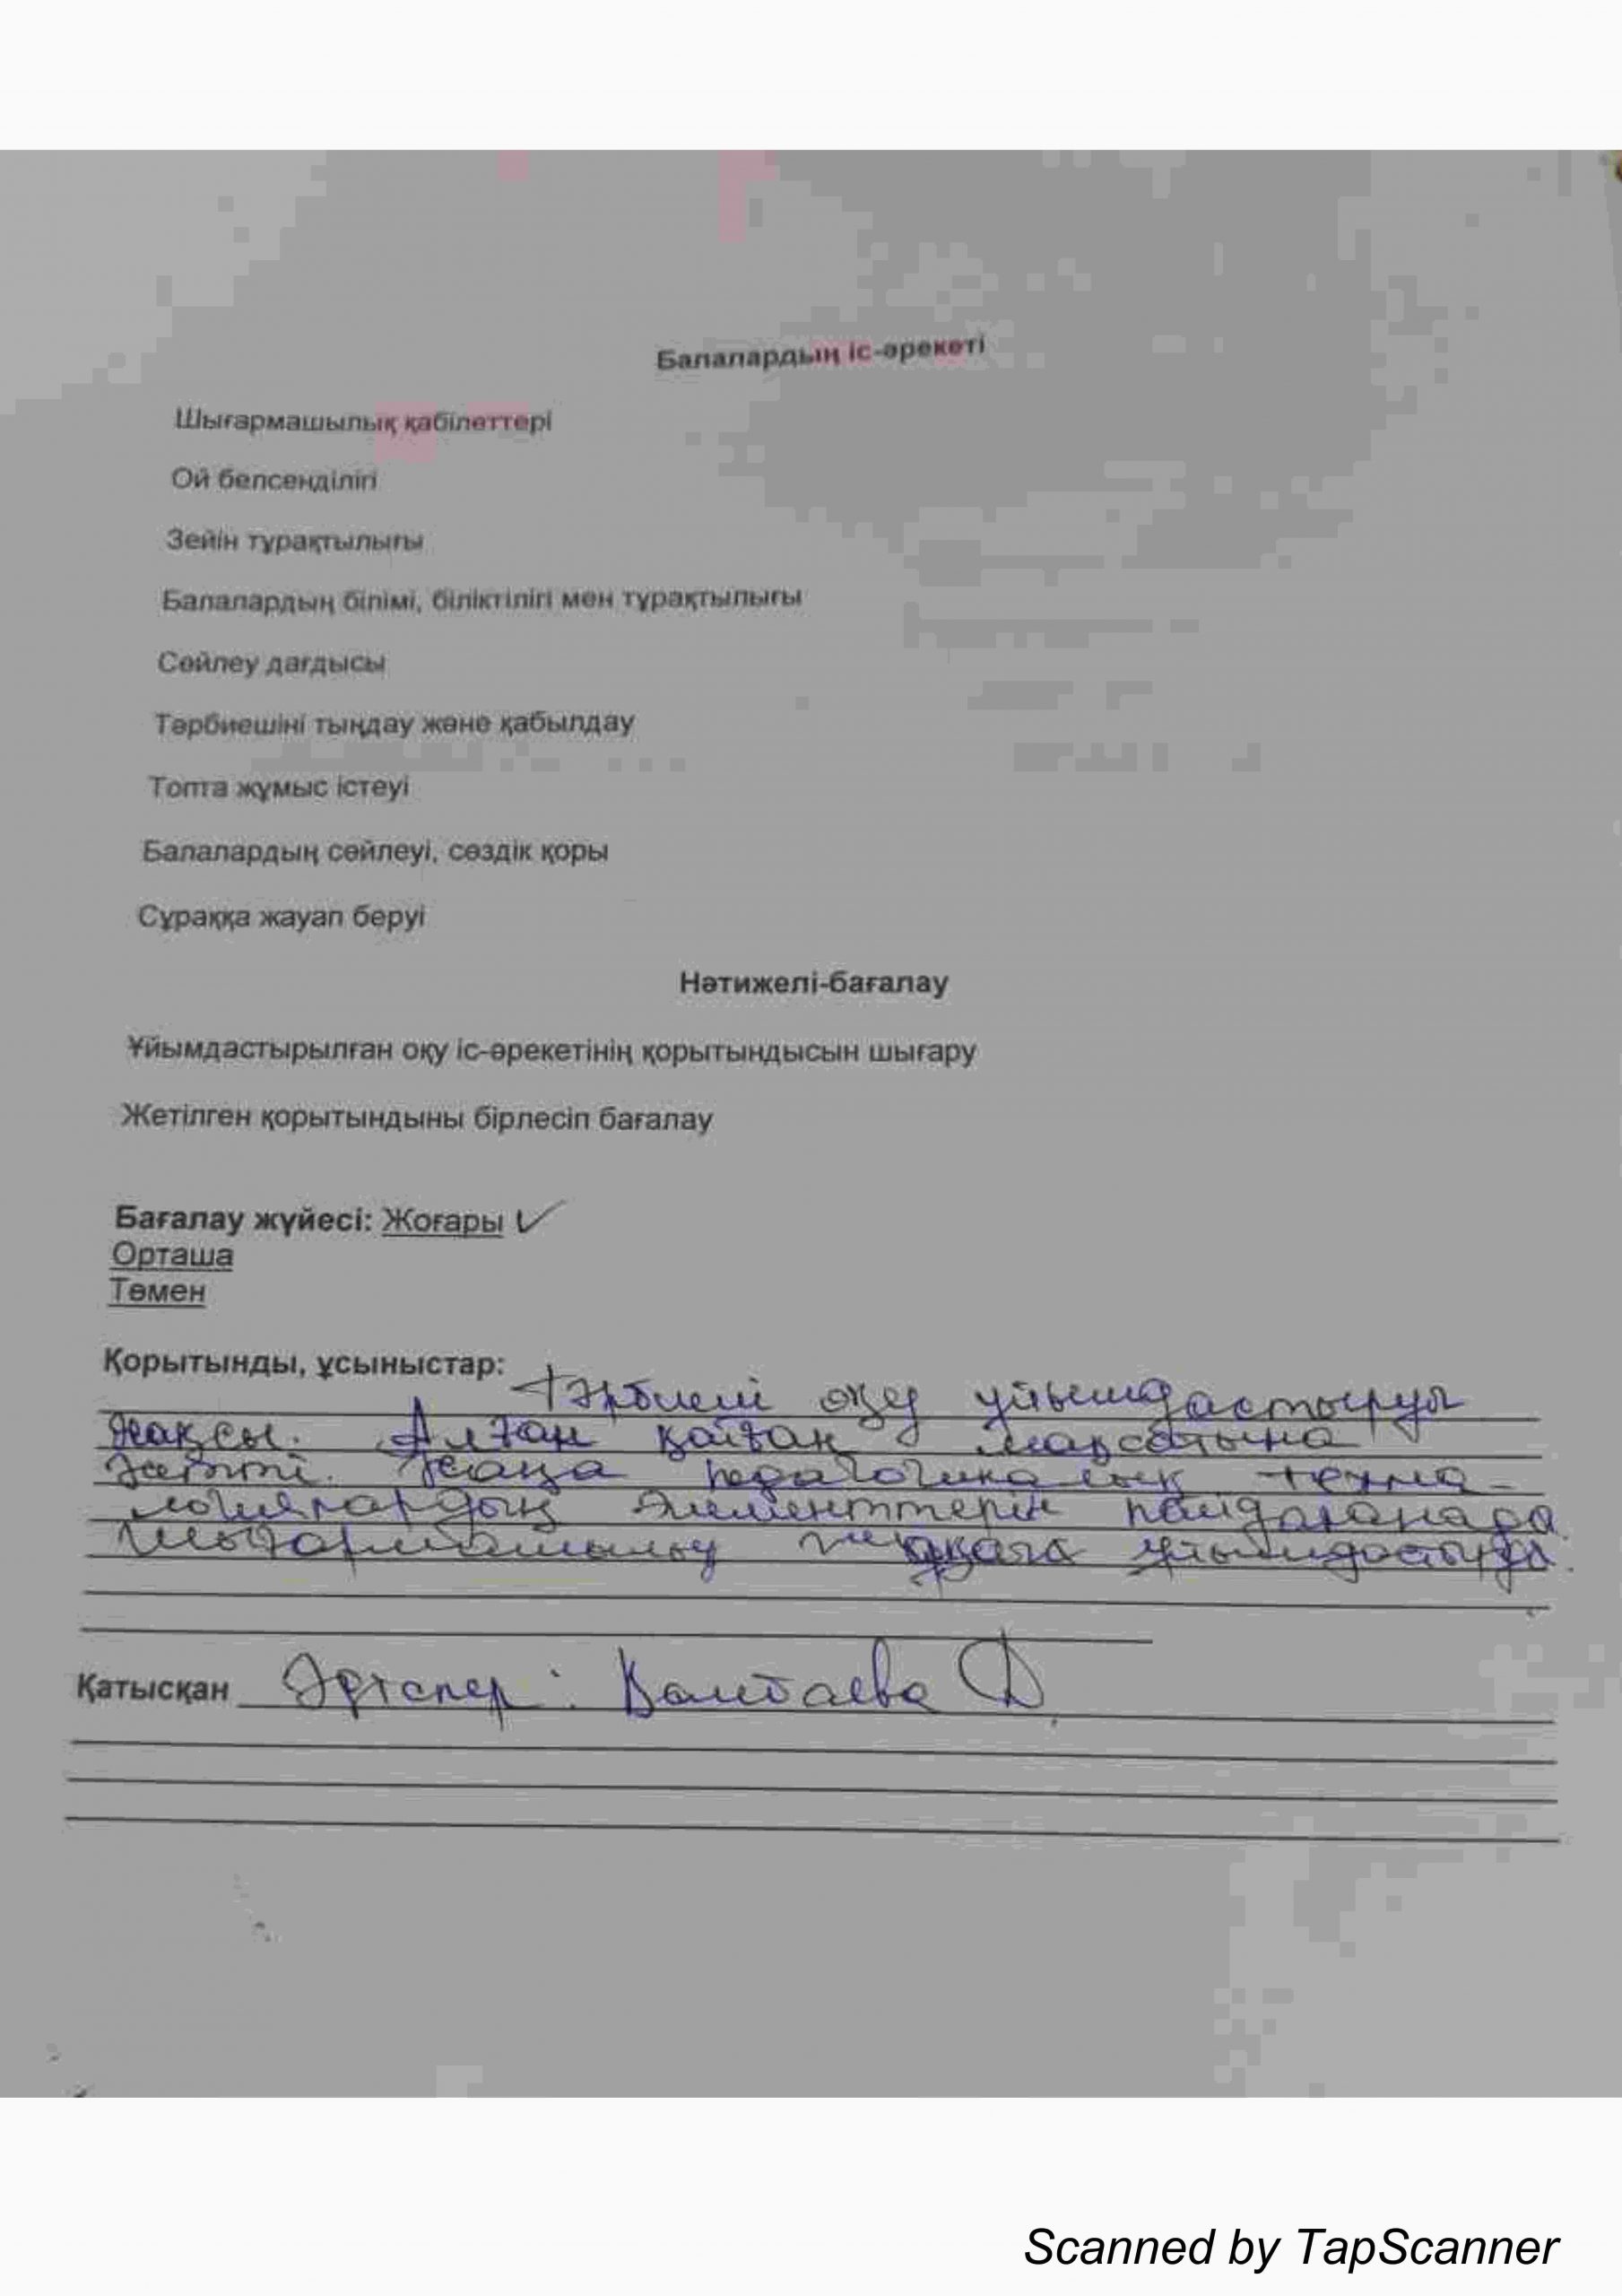 Балалардың іс-әрекеті
Шығармашылық қабілеттері
Ой белсенділігі
Зейін тұрақтылығы
Балалардың білімі, біліктілігі мен тұрақтылығы
Сөйлеу дағдысы
Тәрбиешіні тыңдау және қабылдау
Топта жұмыс істеуі
Балалардың сөйлеуі, сөздік қоры
Сұраққа жауап беруі
Нәтижелі-бағалау
Ұйымдастырылған оқу іс-әрекетінің қорытындысын шығару
Жетілген қорытындыны бірлесіп бағалау
Бағалау жүйесі: Жоғары ✓
Орташа
Төмен
Қорытынды, ұсыныстар:
Тәрбиеші оқу ұйымдастыруы
жақсы. Алған қойған мақсатына
жетті. Жаңа педагогикалық техно-
логиялардың элементтерін пайдаланады.
Шығармашылық ұйымдастырды.
Қатысқан Әдіскер: Д
Scanned by TapScanner